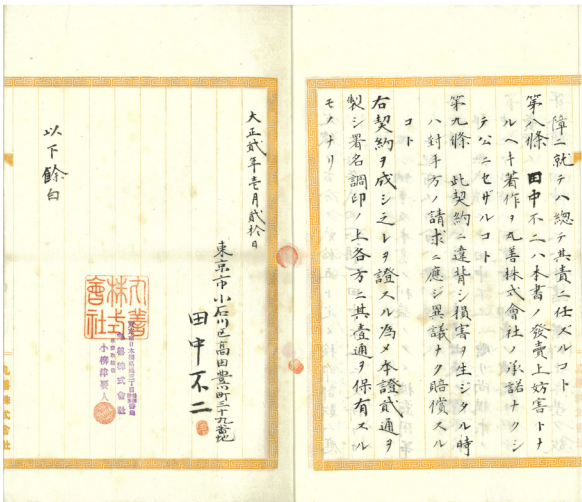 障ニ就テハ總テ其責ニ任ズルコト
第八條　田中不二ハ本書ノ發賣上妨害トナ
ルベキ著作ヲ丸善株式會社ノ承諾ナクシ
テ公ニセザルコト
第九條　此契約ニ違背シ損害ヲ生ジタル時
ハ對手方ノ請求ニ應ジ異議ナク賠償スル
コト
右契約ヲ成シ之レヲ證スル為メ本證貳通ヲ
製シ署名調印ノ上各方ニ其壹通ヲ保有スル
モノナリ
大正貳年壱月貳拾日
東京市小石川区高田豊川町三十九番地
田中不二
丸善株式會社
丸善株式會社
小柳津要人
以下餘白
丸善株式會社